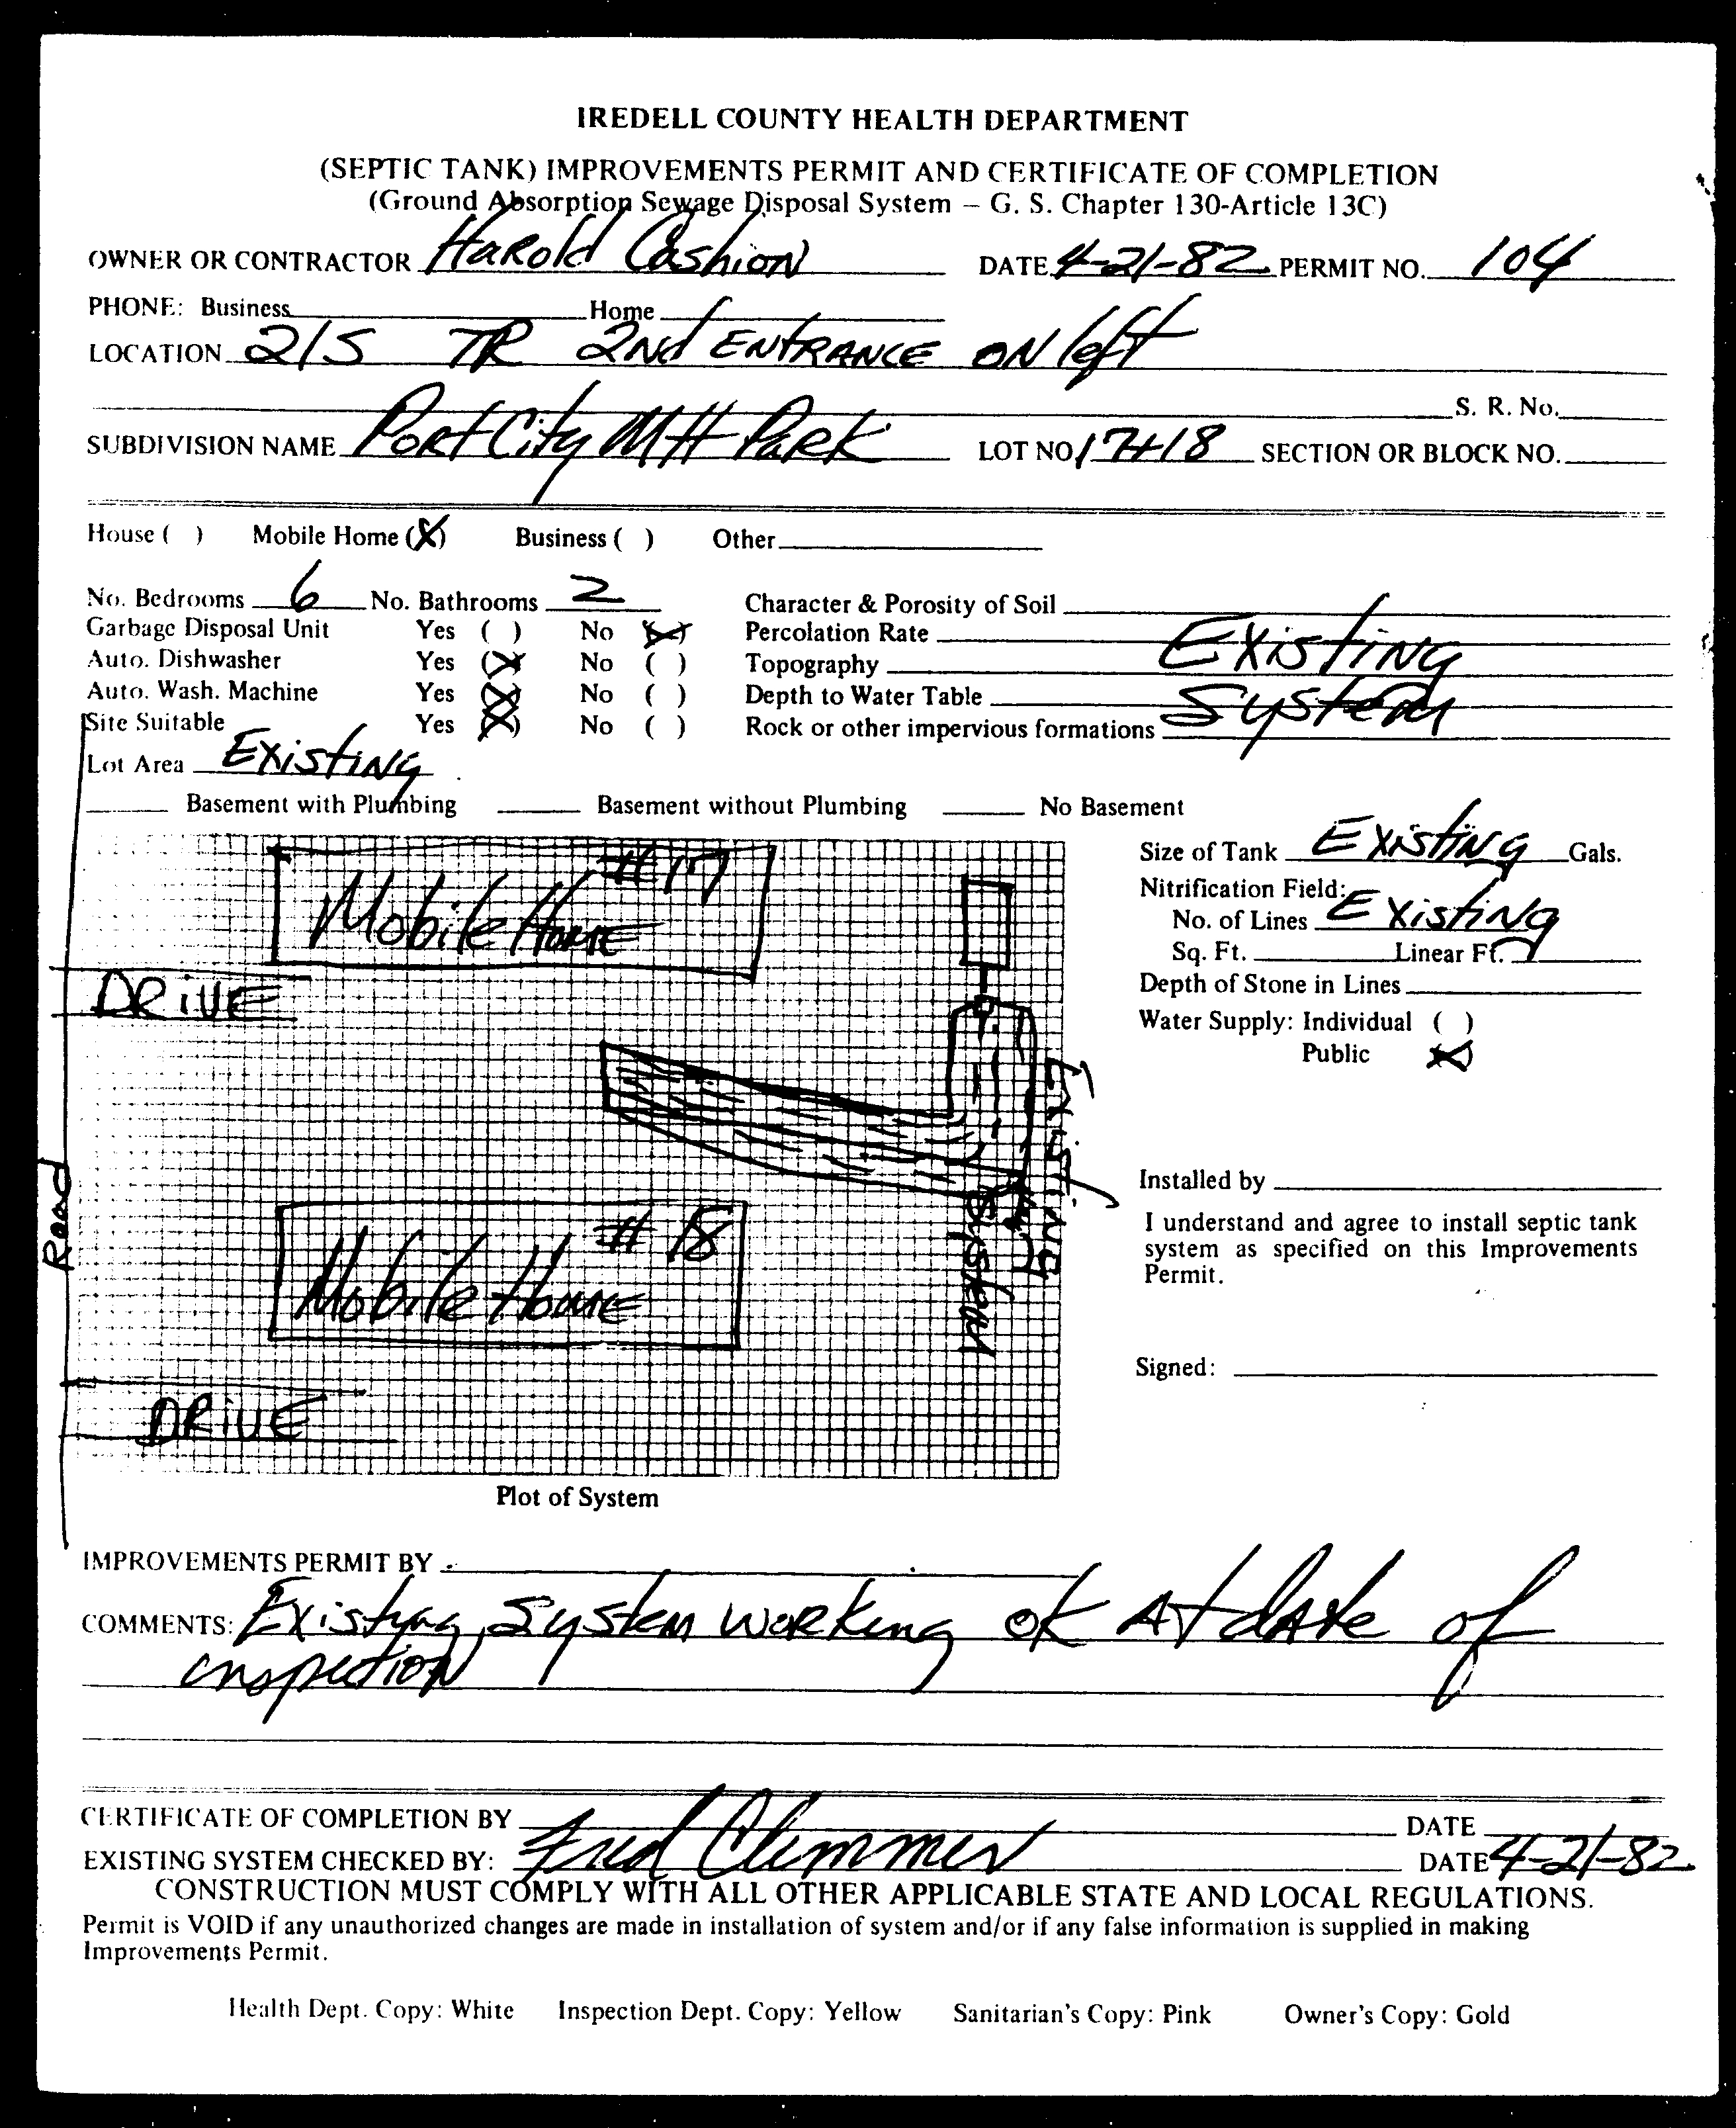 IREDELL COUNTY HEALTH DEPARTMENT
(SEPTIC TANK) IMPROVEMENTS PERMIT AND CERTIFICATE OF COMPLETION
(Ground Absorption Sewage Disposal System – G. S. Chapter 130-Article 13C)
OWNER OR CONTRACTOR Harold Cashion DATE 4-21-82 PERMIT NO. 104
PHONE: Business Home
LOCATION 21S TR 2nd ENTRANCE ON left
S. R. No.
SUBDIVISION NAME Port City MH Park LOT NO. 17+18 SECTION OR BLOCK NO.
House ( ) Mobile Home (X) Business ( ) Other
No. Bedrooms 6 No. Bathrooms 2 Character & Porosity of Soil
Garbage Disposal Unit Yes ( ) No (X) Percolation Rate Existing
Auto. Dishwasher Yes (X) No ( ) Topography
Auto. Wash. Machine Yes (X) No ( ) Depth to Water Table System
Site Suitable Yes (X) No ( ) Rock or other impervious formations
Lot Area Existing
Basement with Plumbing Basement without Plumbing No Basement
Size of Tank Existing Gals.
Nitrification Field:
No. of Lines Existing
Sq. Ft. Linear Ft.
Depth of Stone in Lines
Water Supply: Individual ( )
Public (X)
# 17
Mobile Home
DRIVE
Existing
System
Road
# 18
Mobile Home
DRIVE
Installed by
I understand and agree to install septic tank
system as specified on this Improvements
Permit.
Signed:
Plot of System
IMPROVEMENTS PERMIT BY
COMMENTS: Existing System working ok At date of
inspection
CERTIFICATE OF COMPLETION BY DATE
EXISTING SYSTEM CHECKED BY: Fred Clemmer DATE 4-21-82
CONSTRUCTION MUST COMPLY WITH ALL OTHER APPLICABLE STATE AND LOCAL REGULATIONS.
Permit is VOID if any unauthorized changes are made in installation of system and/or if any false information is supplied in making
Improvements Permit.
Health Dept. Copy: White Inspection Dept. Copy: Yellow Sanitarian's Copy: Pink Owner's Copy: Gold